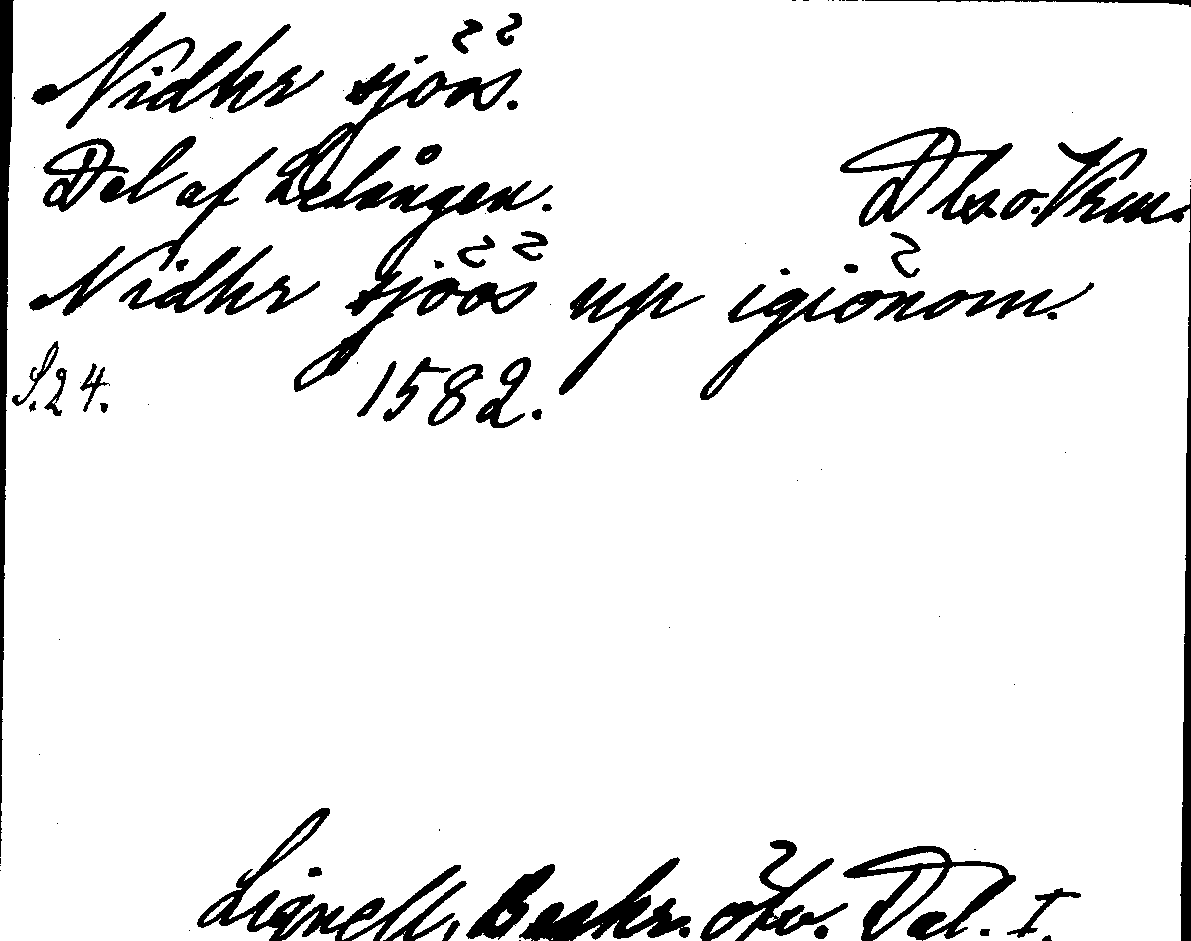 Nidhr sjöös.
Del af Lelången. Dls. o. Vrm.
Nidhr sjöös up igiönom.
S. 24. 1582.
Lignell, Beskr. öfv. Dal. I.